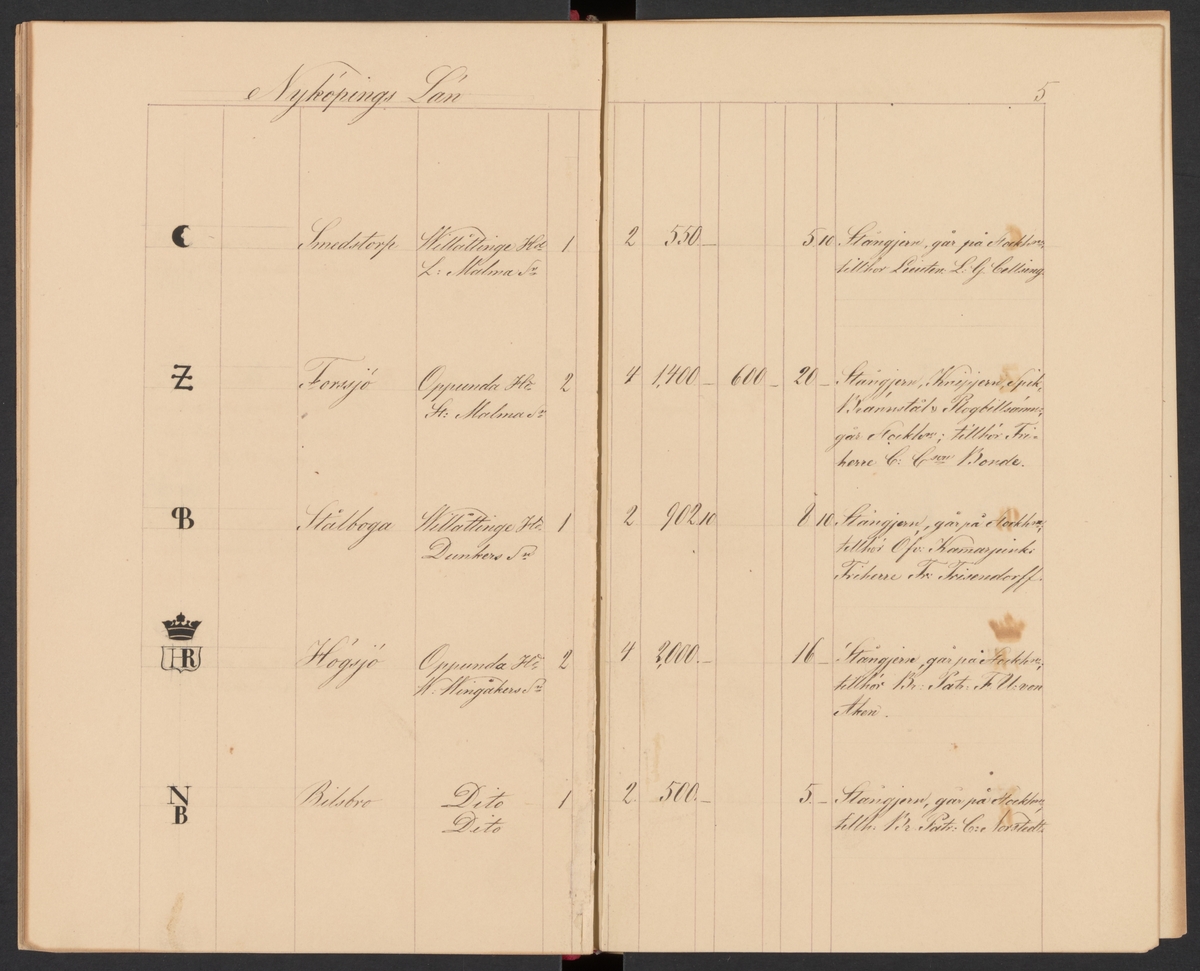 Nyköpings Län 5
Smedstorp Willåttinge Hd 1 2 550 — 5 10 Stångjern, går på Stockhm;
L: Malma Sn tillhör Lieuten. L. G. Celsing.
Z Forssjö Oppunda Hd 2 4 1,400 — 600 — 20 — Stångjern, Knipjern, Spik,
St: Malma Sn Brännstål &
går Stockhm; tillhör Fri-
herre C: Cson Bonde.
B Stålboga Willåttinge Hd 1 2 902 10 8 10 Stångjern, går på Stockhm;
Dunkers Sn tillhör Öfv. Kamarjunk:
Friherre Fr: Frisendorff.
HR Högsjö Oppunda Hd 2 4 2,000. — 16 — Stångjern, går på Stockhm;
W. Wingåkers Sn tillhör Br: Patr: F U: von
Aken.
N Bilsbro Dito 1 2 500. — 5. — Stångjern, går på Stockhm;
B Dito tillh. Br. Patr: C: Norstedt.